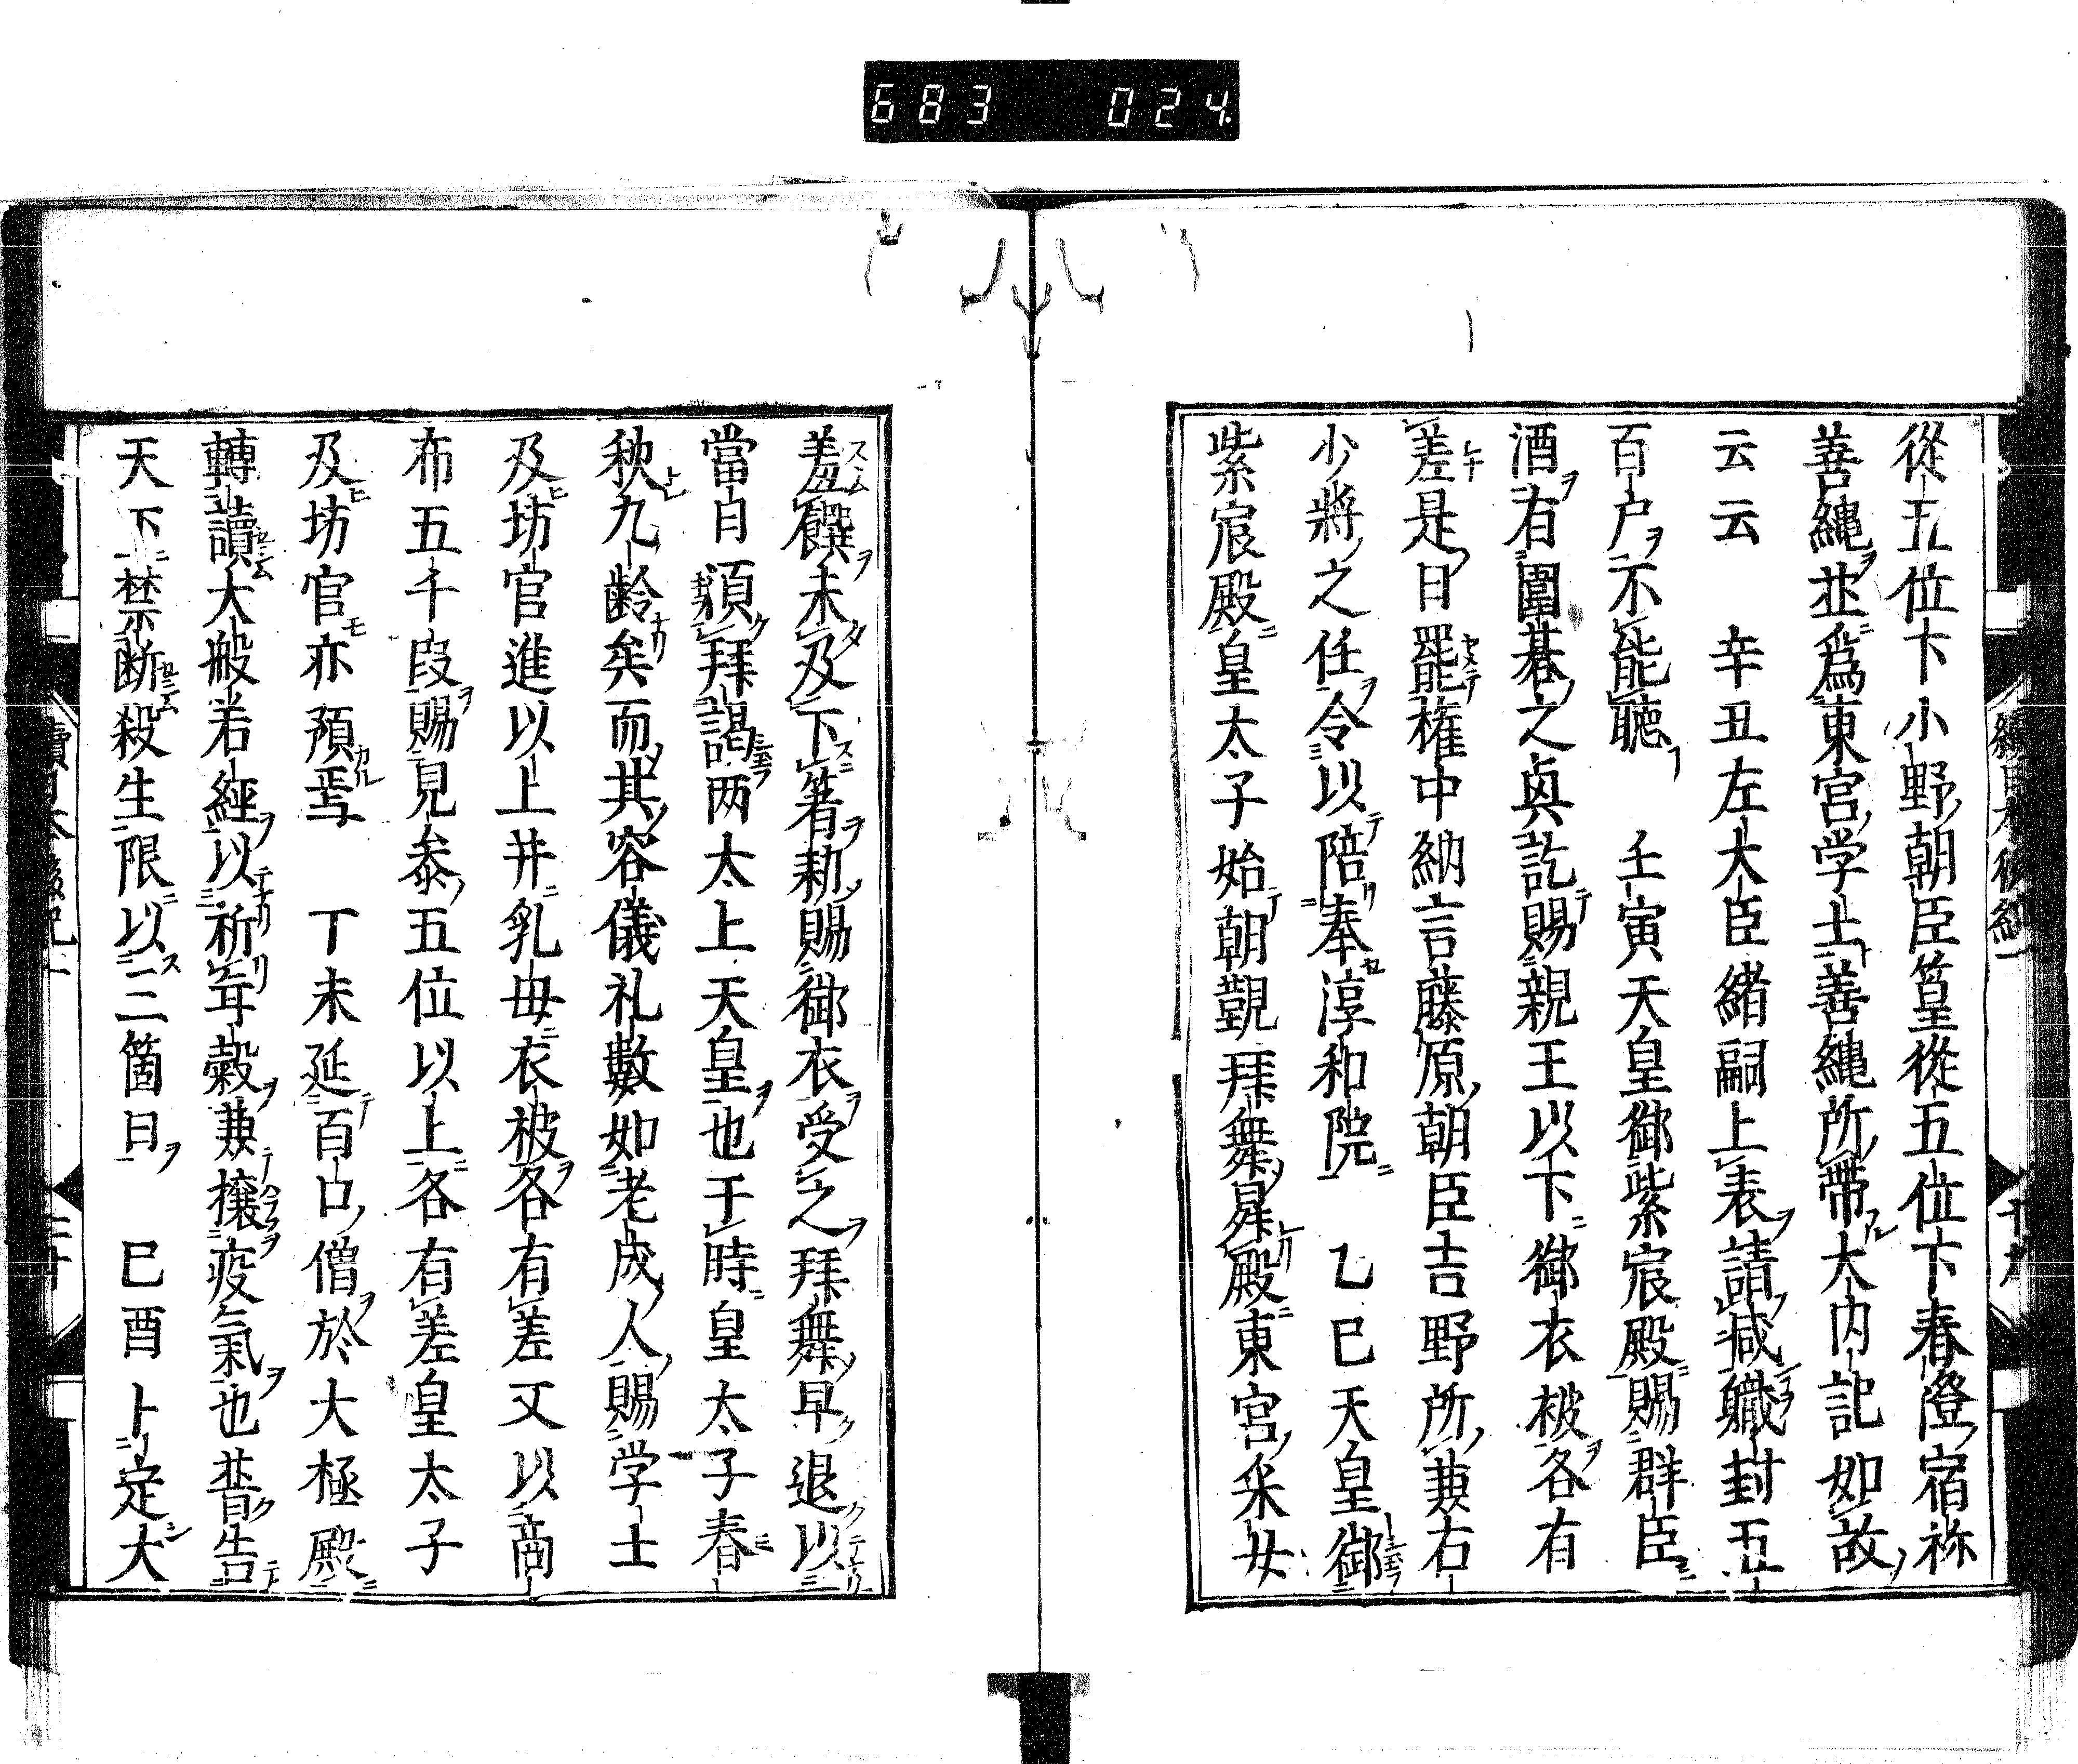 683 024
從五位下小野朝臣篁從五位下春澄宿祢
善繩並爲東宮学士善繩所帶大内記如故
云云 辛丑左大臣緒嗣上表請减職封五
百户不能聴 壬寅天皇御紫宸殿賜群臣
酒有圍碁之興訖賜親王以下御衣被各有
差是日罷権中納言藤原朝臣吉野所兼右
少將之任令以陪奉淳和院 乙巳天皇御
紫宸殿皇太子始朝覲拜舞昇殿東宮采女
羞饌未及下箸勅賜御衣受之拜舞早退以
當自須拜謁两太上天皇也于時皇太子春
秋九齡矣而其容儀礼數如老成人賜学士
及坊官進以上并乳母衣被各有差又以商
布五千段賜見参五位以上各有差皇太子
及坊官亦預焉 丁未延百口僧於大極殿
轉讀大般若經以祈年穀兼攘疫氣也普告
天下禁断殺生限以三箇日 巳酉卜定大